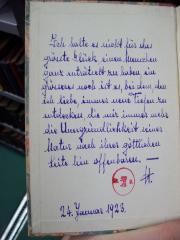 Ich halte es nicht für das
grösste Glück, einen Menschen
ganz enträtselt zu haben, ein
grösseres noch ist es, bei dem, den
ich liebe, immer neue Tiefen zu
entdecken, die mir immer mehr
die Unergründlichkeit seiner
Natur nach ihrer göttlichen
Seite hin offenbaren. —
24. Januar 1923.